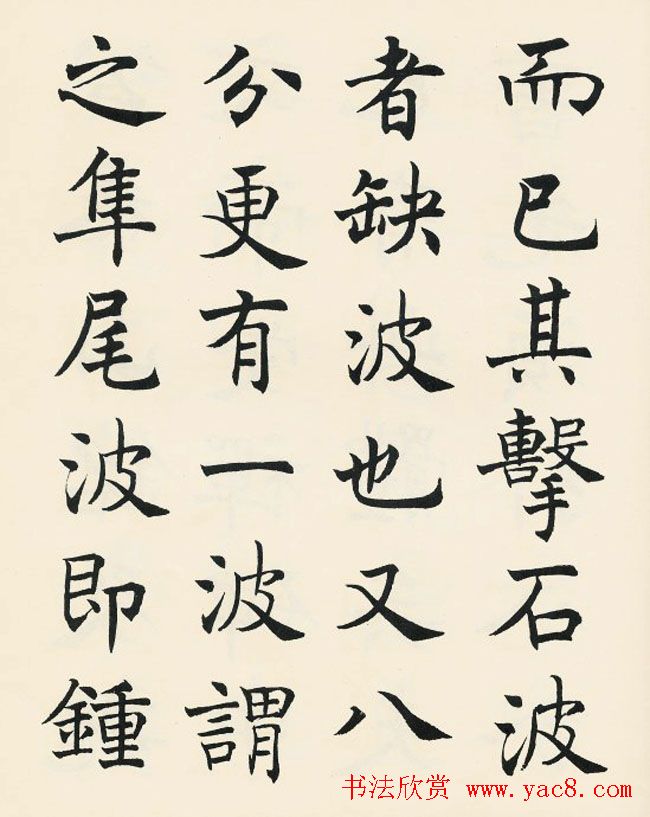 而已其擊石波
者缺波也又八
分更有一波謂
之隼尾波即鍾
书法欣赏 www.yac8.com